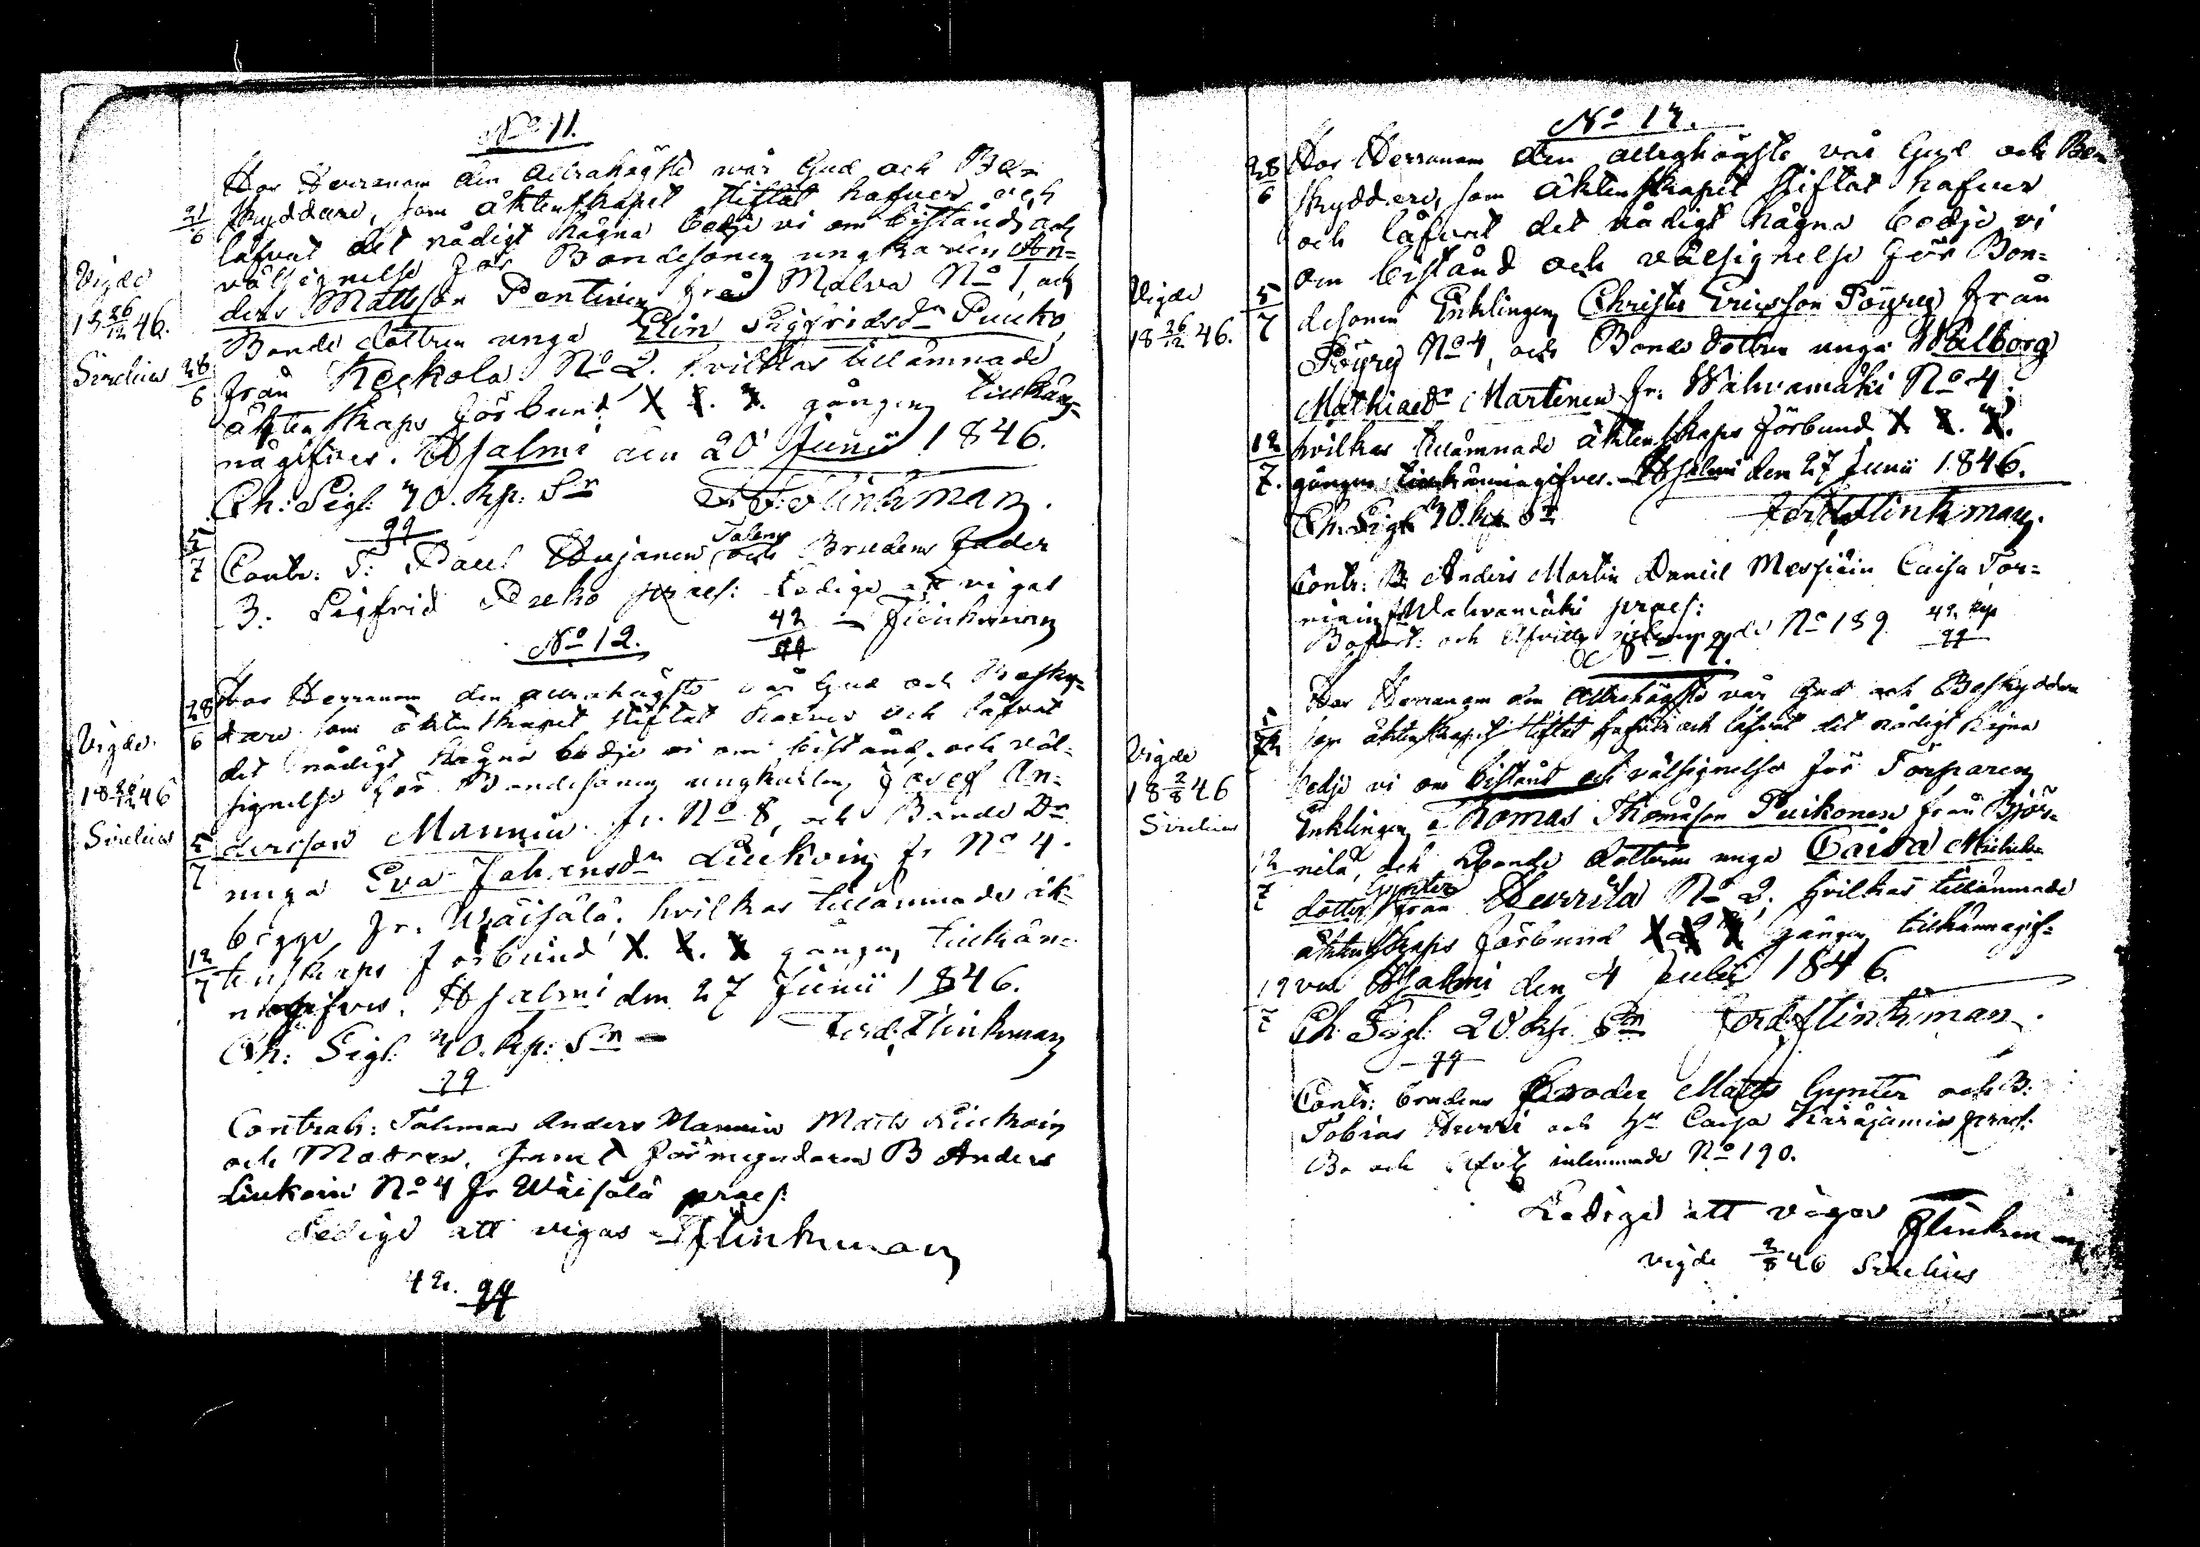 No 11.
Hos Herranom den Allrahögste vår Gud och Be-
21/6 skyddare, som äktenskapet stiftat hafver och
låfvat det nådigt hägna bedje vi om bistånd och
välsignelse för Bondesonen ungkarlen An-
ders Mattsson Pentinen från Malva No 1, och
Vigde
18 26/12 46.
Sirelius
Bonde dottren unga Elin Sigfridsdr Puuko
28/6 från Keckola No 2. hvilkas tillämnade
äktenskaps förbund X X. X. gången tillkän-
nagifves. Hjalmi den 20 Junii 1846.
Ch: Sigl: 30. kp. Sr F. Flinkman.
99
5/7 Contr: T: Paul Hujanen Talem och Brudens fader
B: Sigfrid Puko praes: Ledige att vigas
42 99 Flinkman
No 12.
28/6 Hos Herranom den allrahögste vår Gud och Besky-
dare som äktenskapet stiftat hafver och låfvat
Vigde
18 26/12 46
Sirelius
det nådigt hägna bedje vi om bistånd, och väl-
signelse för Bondesonen ungkarlen Josef An-
5/7 dersson Mannin fr. No 8, och Bonde Dr
unga Eva Johansdr Liukoin fr No 4.
bägge fr. Wäisälä, hvilkas tillämnade äk-
12/7 tenskaps förbund X. X. X gången tillkän-
nagifves. Hjalmi den 27 Junii 1846.
Ch: Sigl: 30. kp: Sr Ferd: Flinkman
99
Contrah: Talman Anders Mannin Matts Liukoin
och Modren, samt förmyndaren B Anders
Liukoin No 4 fr Wäisälä praes:
Ledige att vigas Flinkman
42. 99
No 13.
28/6 Hos Herranom den allrahögste vår Gud och Be-
skyddare, som äktenskapet stiftat hafver
och låfvat det nådigt hägna bedje vi
om bistånd och välsignelse för Bon-
Vigde
18 26/12 46.
5/7 desonen Enklingen Christer Ericsson Pöyry från
Pöyry No 4, och Bonde dottren unga Walborg
Mathiaedr Martinen fr. Wahvamäki No 4.
12/7. hvilkas tillämnade äktenskaps förbund X. X. X.
gången tillkännagifves. Hjalmi den 27 Junii 1846.
Ch: Sigl 30. kp Sr Ferd Flinkman.
Contr: B: Anders Martin Daniel Caisa Tor-
Wahvamäki praes:
och No 189 42 kp 99
No 14.
Hos Herranom den Allrahögste vår Gud och Beskyddare
som äktenskapet stiftat hafver och låfvat det nådigt hägna
Vigde
18 2/8 46
Sirelius
bedje vi om bistånd och välsignelse för Torparen
Enklingen Thomas Thomasson Puikonen från Björ-
12/7 nilä, och Bonde dottren unga Caisa Michels-
dotter Gynter från Hurrila No 2. hvilkas tillämnade
äktenskaps förbund X X X gången tillkännagif-
19/7 ves Hjalmi den 4 Julii 1846.
Ch: Sigl: 20 kp. Sr Ferd: Flinkman.
99
Contr: brudens broder Matts Gynter och B:
Tobias Hurri och Caisa praes:
Be och inlemnade No 190.
Ledige att vigas Flinkman
vigde 2/8 46 Sirelius